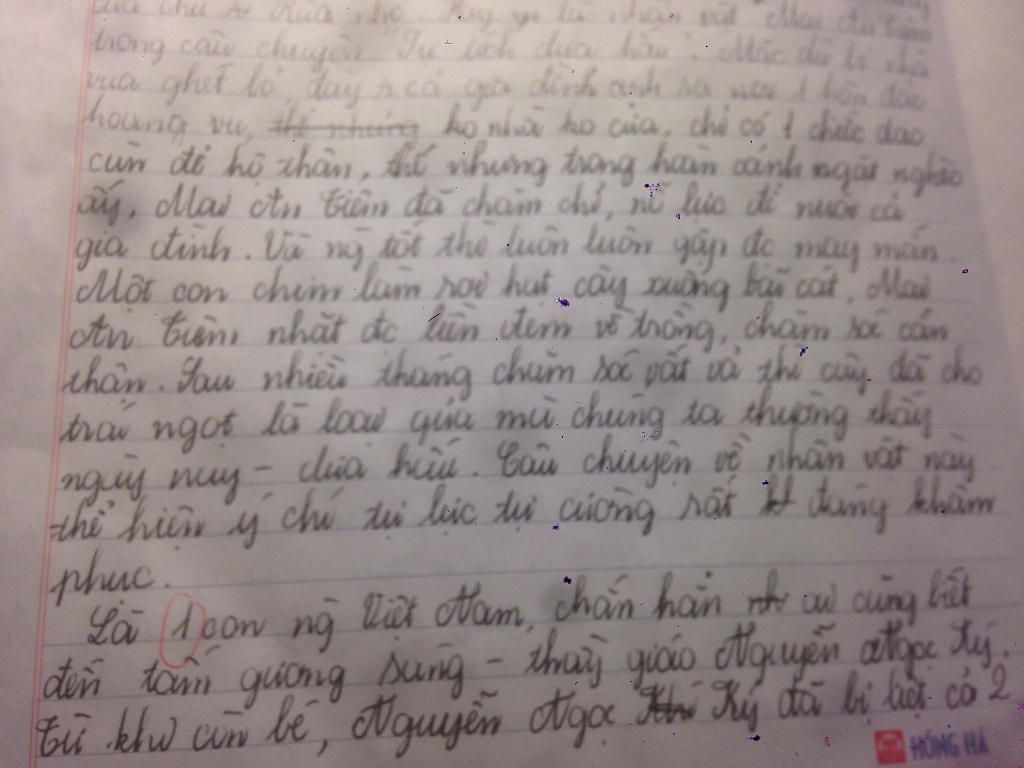 của chú Rùa nhỏ. Hay như là nhân vật Mai An Tiêm
trong câu chuyện "Sự tích dưa hấu". Mặc dù bị nhà
vua ghét bỏ, đày cả gia đình anh ra nơi 1 hòn đảo
hoang vu, thế nhưng ko nhà ko cửa, chỉ có 1 chiếc dao
cùn để hộ thân, thế nhưng trong hoàn cảnh ngặt nghèo
ấy, Mai An Tiêm đã chăm chỉ, nỗ lực để nuôi cả
gia đình. Và ng tốt thì luôn luôn gặp đc may mắn.
Một con chim làm rơi hạt cây xuống bãi cát, Mai
An Tiêm nhặt đc liền đem về trồng, chăm sóc cẩn
thận. Sau nhiều tháng chăm sóc vất vả thì cây đã cho
trái ngọt là loại qủa mà chúng ta thường thấy
ngày nay - dưa hấu. Câu chuyện về nhân vật này
thể hiện ý chí tự lực tự cường rất đáng khâm
phục.
Là 1 con ng Việt Nam, chắn hẳn ai cũng biết
đến tấm gương sáng - thầy giáo Nguyễn Ngọc Ký.
Từ khi còn bé, Nguyễn Ngọc Ký đã bị liệt cả 2
HỒNG HÀ